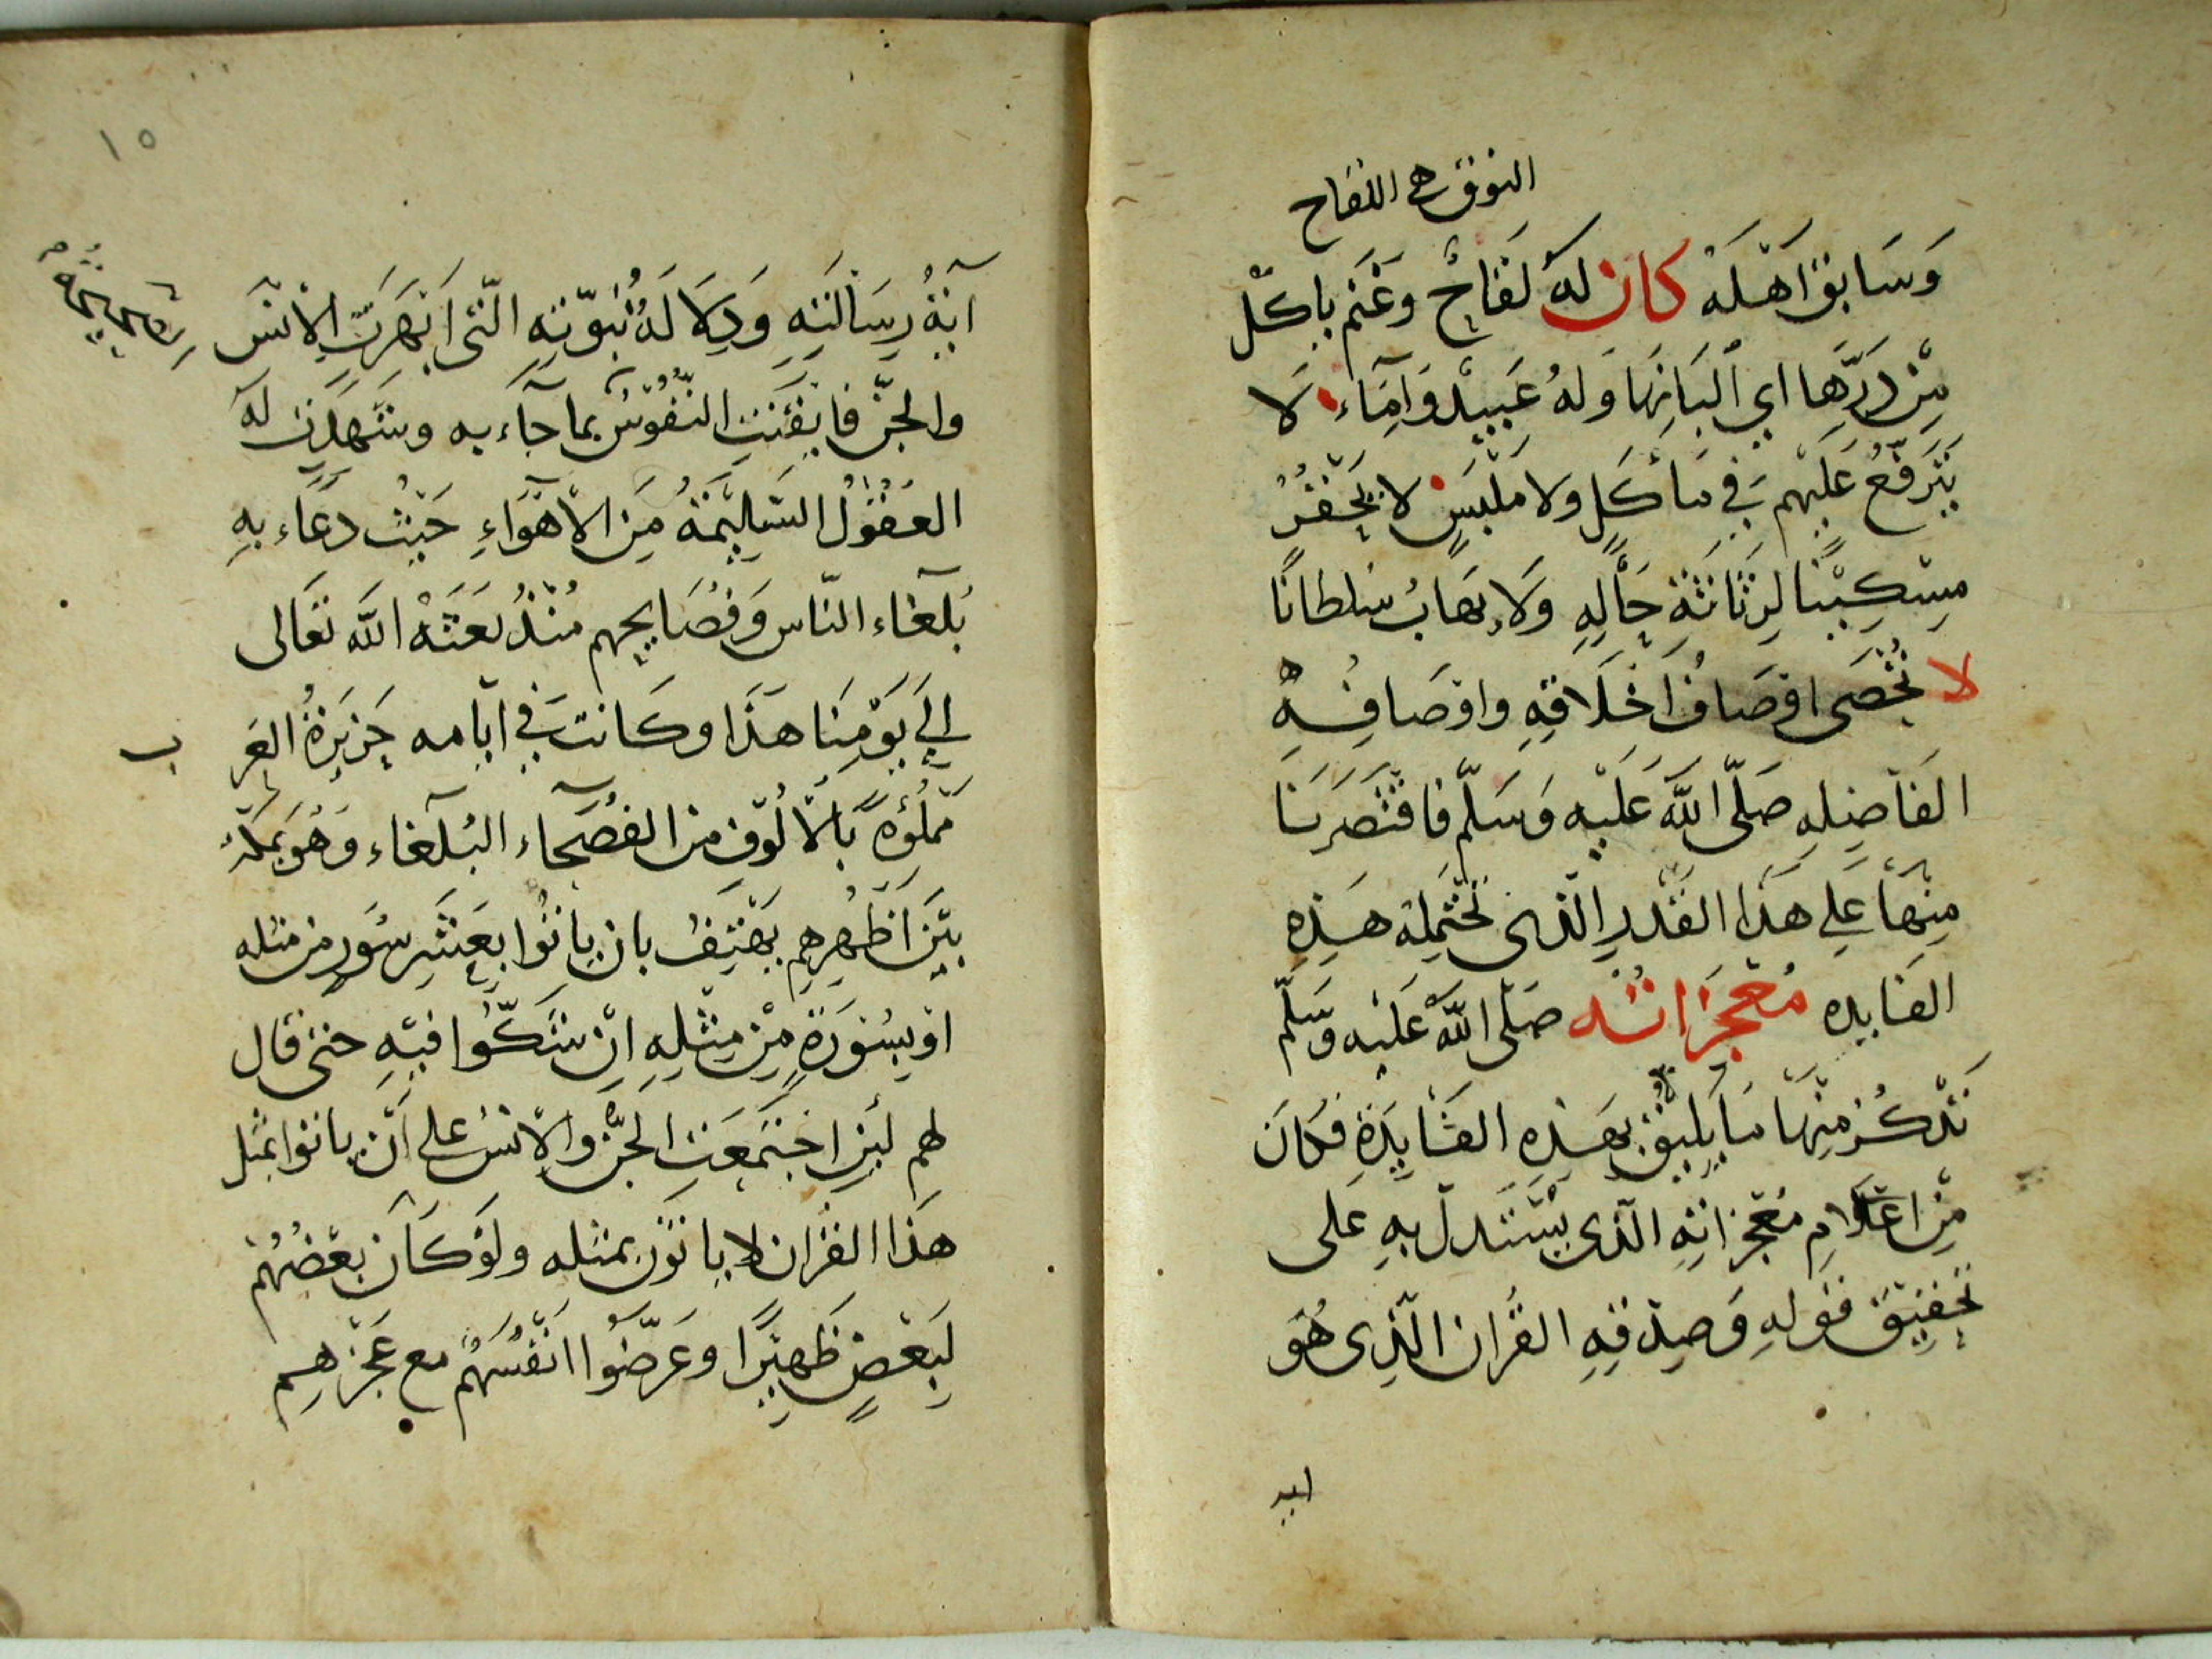 النوق هى اللقاح
وَسَابَقَ اَهْلَهُ كان لَهُ لَقَاحٌ وَغَنَم ياكل
مِنْ دَرِّهَا اي اَلْبَانِهَا وَلهُ عَبِيدٌ وَاَمَاء لَا
يَتَرَفَّعُ عَلَيْهِم فِي مَاْكَلٍ ولا مَلْبَسٍ لا يَحْقِرُ
مِسْكِيْنًا لِرَثَاثَةِ حَالِهِ وَلَا يَهَابُ سُلطانًا
لا تُحْصَى اوْصَافُ اَخْلَاقِهِ واوْصَافِهِ
الفَاضِلِه صَلّى اللّهَ عَلَيْهِ وَسَلّم فاقْتَصَرنَا
مِنْهَا عَلى هَذَا القَدْرِ الّذى تحْتَمِله هَذِهِ
الفَايده مُعْجِزَاتُه صَلّى اللّه عَلَيْه وَسَلّم
نَذْكُرْ مِنْهَا مَا يَلِيْقُ بِهَذِهِ الفَايِدَةِ فكانَ
مِنْ اعْلَامِ مُعْجِزاتِهِ الّذى يُسْتَدلّ بِهِ على
تَحْقِيْقِ قَوْلِهِ وَصِدْقِهِ القُرآن الّذِى هُوَ
ايه
١٥
آيَةُ رِسَالَتِهِ وَدِلَالَةُ نُبُوّتِهِ الّتى اَبْهَرَتِ الاِنْسَ
والجِنّ فايْقَنَتِ النُّفُوسُ بما جآء به وشَهِدَتْ لَهُ
العُقُوْلُ السَّلِيْمَةُ مِنَ الاَهْوَاءِ حَيْثُ دَعَاء بِهِ
بُلَغَاء النّاس وَفُصَايحهم مُنْذُ بَعَثَهُ اللّه تَعَالى
اِلي يَوْمِنَا هَذَا وكَانت في ايّامه جَزِيْرَةُ العَرَ
ب
مَمْلُؤَهً بالالُوْف من الفُصَحَاء البُلَغَاء وَهُوَ بمكّه
بَيْنَ اَظْهُرِهِم يَهْتِفُ بان ياتُوا بِعَشْرِ سُوَرٍ من مثله
اوْ بِسُوْرَةٍ مِنْ مِثْلِهِ اِنْ شَكُّوا فيْهِ حتى قال
لهم لَئِنِ اجْتَمَعَتِ الجِنُّ والاِنسُ على اَنْ ياتوا بمثل
هَذَا القُرْان لا ياتُوْنَ بمثله ولَوْ كَانَ بَعْضُهُمْ
لِبَعْضٍ ظَهِيْرًا وعَرَضُوا اَنْفُسَهُم مع عَجْزِهِم